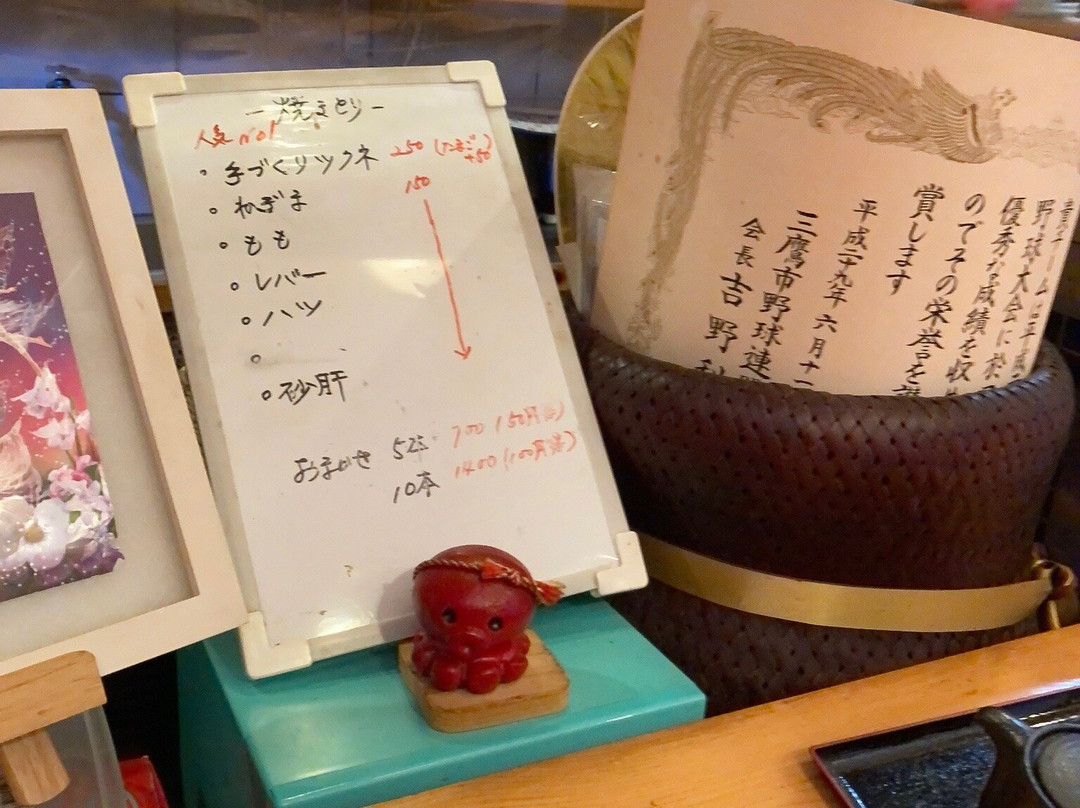 ー焼きとりー
人気 no1
・手づくりツクネ 250 (たまご+50)
・ねぎま 150
・もも
・レバー
・ハツ
・砂肝
おまかせ 5本 700 (50円
10本 1400 (100円
貴チームは平成
野球大会に於
優秀な成績を収
のでその栄誉を
賞します
平成二十九年六月十一
三鷹市野球連
会長 吉野